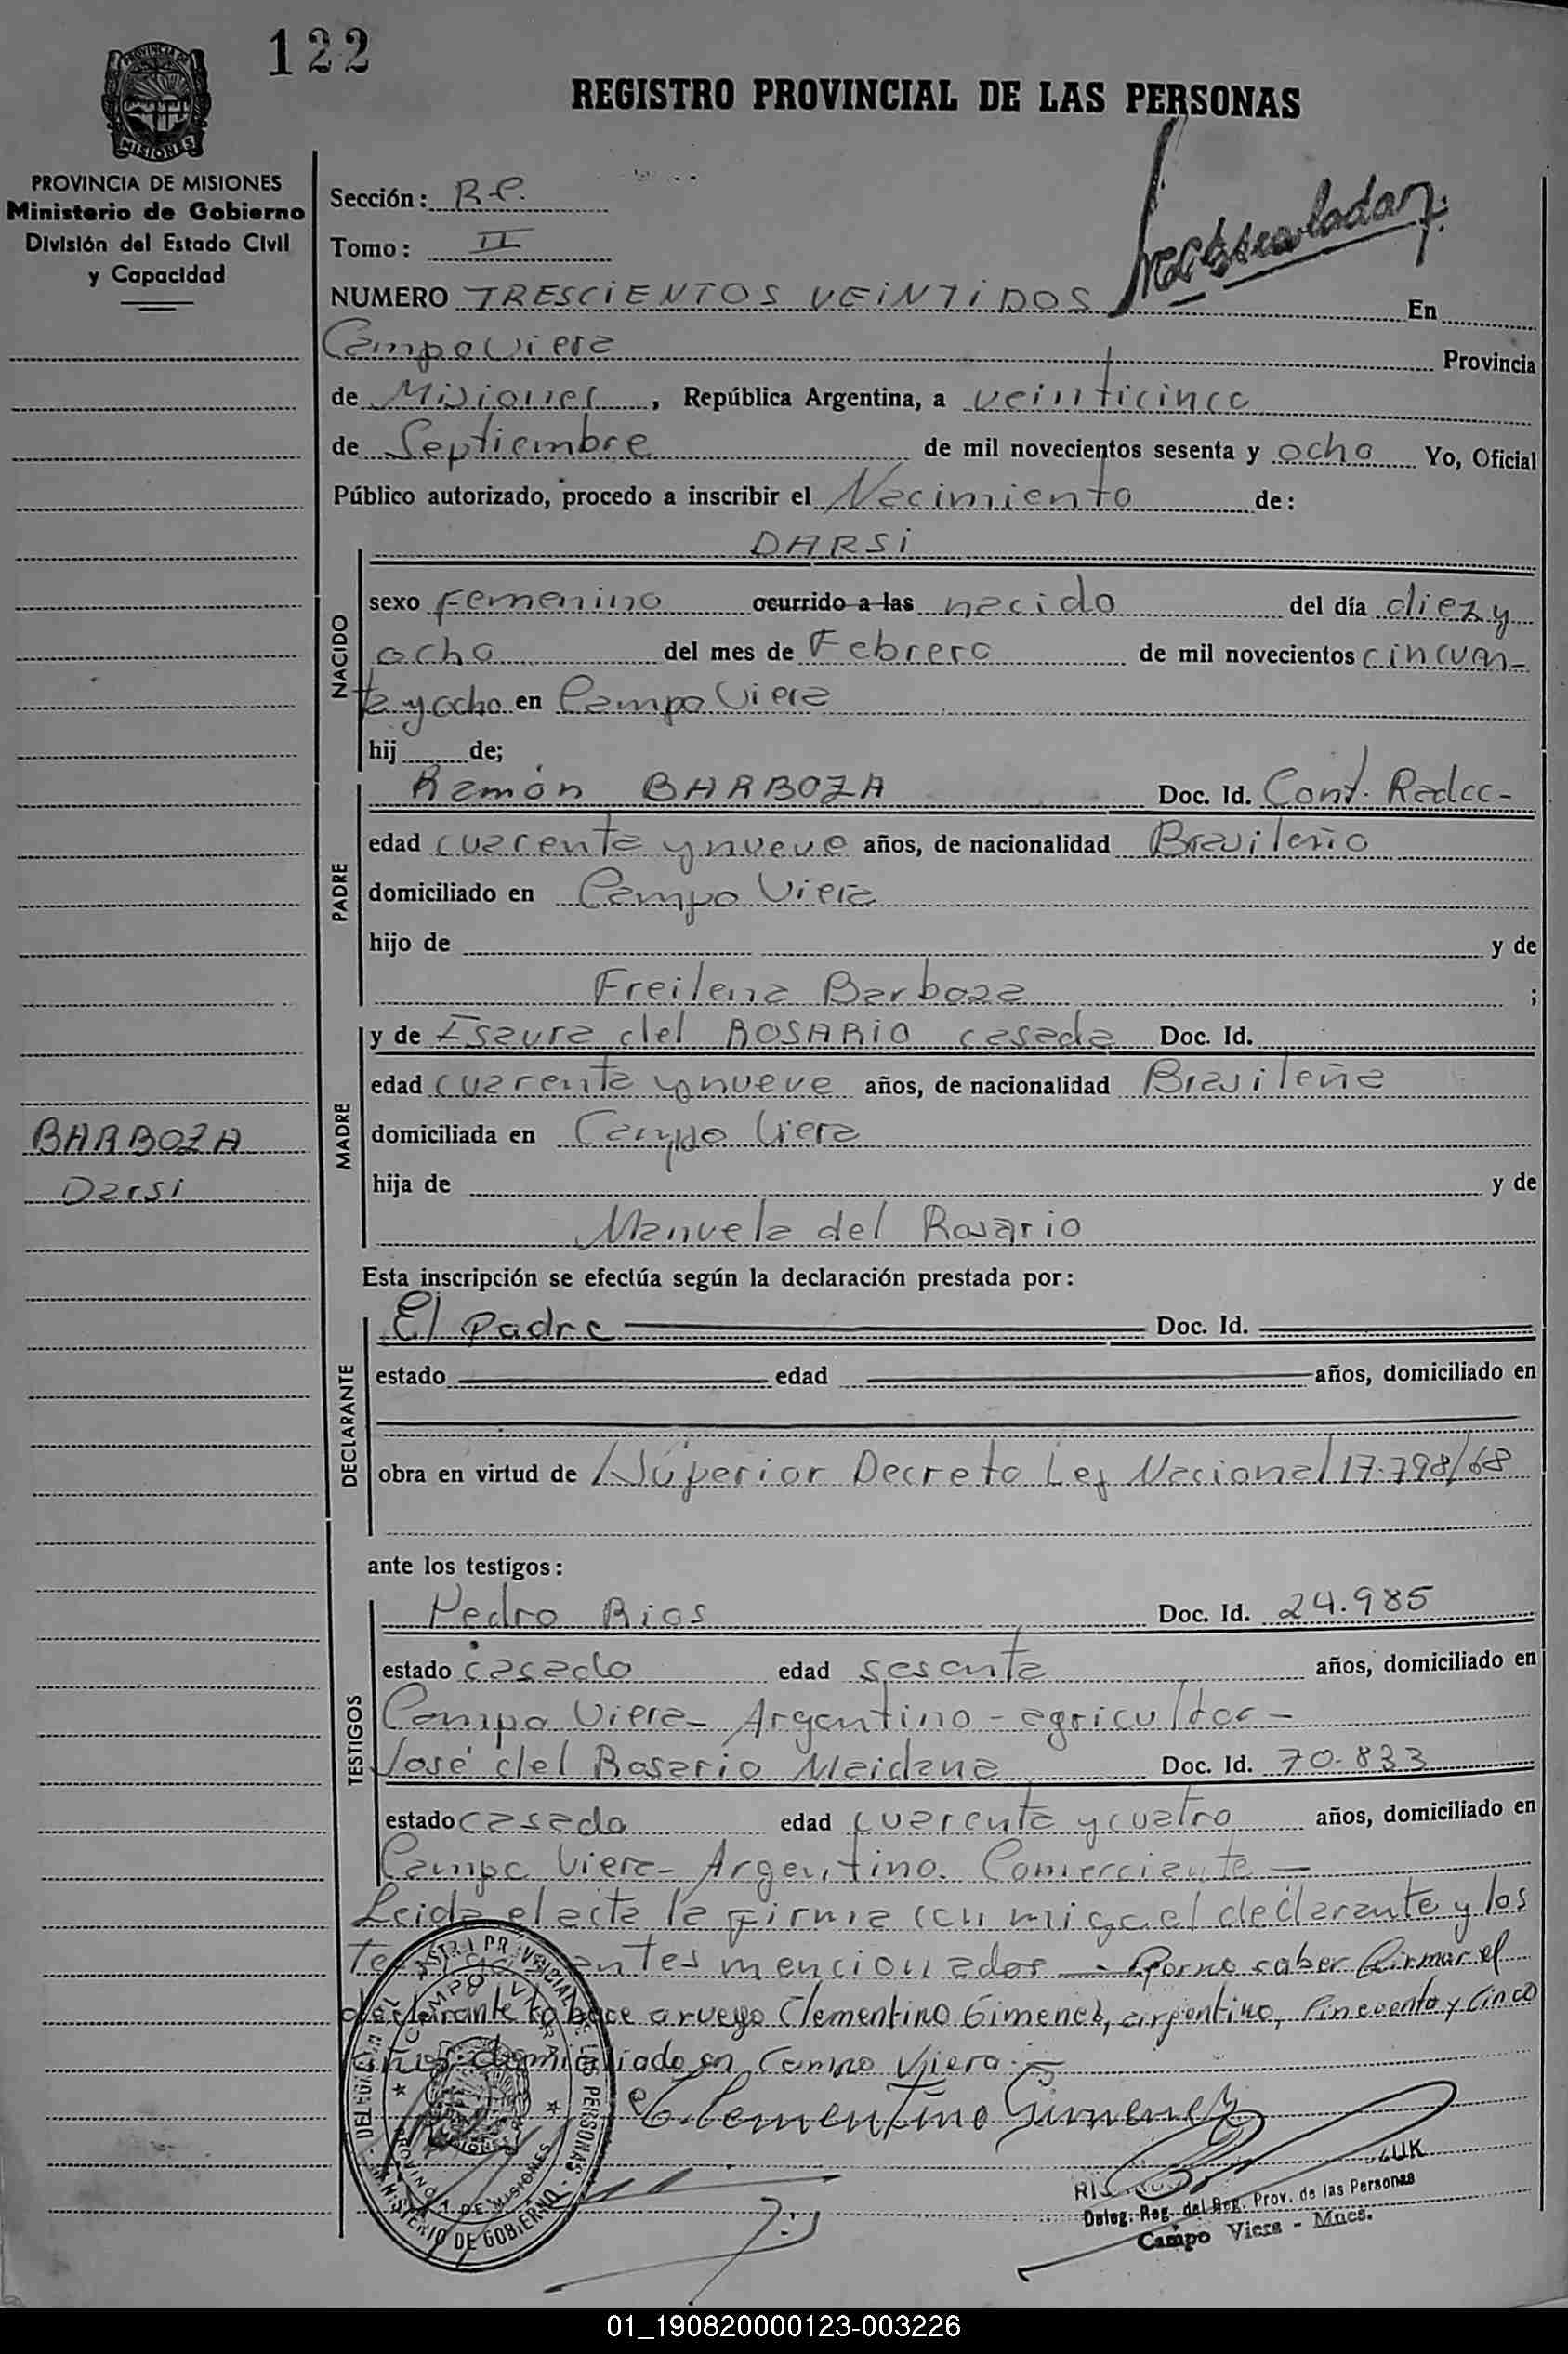 122
REGISTRO PROVINCIAL DE LAS PERSONAS
MISIONES
PROVINCIA DE MISIONES
Ministerio de Gobierno
División del Estado Civil
y Capacidad
Sección: R-P.
Tomo: II
NUMERO TRESCIENTOS VEINTIDOS En
Campo Viera Provincia
de Misiones, República Argentina, a veinticinco
de Septiembre de mil novecientos sesenta y ocho Yo, Oficial
Público autorizado, procedo a inscribir el Nacimiento de:
DARSI
NACIDO
sexo Femenino ocurrido a las nacido del día diez y
ocho del mes de Febrero de mil novecientos cincuen-
ta y ocho en Campo Viera
hij de;
PADRE
Ramón BARBOZA Doc. Id. Cont. Radic-
edad cuarenta y nueve años, de nacionalidad Brasileño
domiciliado en Campo Viera
hijo de y de
Freilena Barboza ;
MADRE
y de Isaura del ROSARIO casada Doc. Id.
edad cuarenta y nueve años, de nacionalidad Brasileña
domiciliada en Campo Viera
hija de y de
Manuela del Rosario
BARBOZA
Darsi
Esta inscripción se efectúa según la declaración prestada por:
DECLARANTE
El padre Doc. Id.
estado edad años, domiciliado en
obra en virtud de Superior Decreto Ley Nacional 17.798/68
ante los testigos:
TESTIGOS
Pedro Rios Doc. Id. 24.985
estado casado edad sesenta años, domiciliado en
Campo Viera- Argentino - agricultor -
José del Rosario Maidana Doc. Id. 70.833
estado casado edad cuarenta y cuatro años, domiciliado en
Campo Viera- Argentino. Comerciante -
Leida el acta la firma con migo el declarante y los
antes mencionados - Por no saber firmar el
declarante lo hace a ruego Clementino Gimenez, argentino, cincuenta y cinco
años domiciliado en Campo Viera.
Clementino Gimenez
Deleg. Reg. del Reg. Prov. de las Personas
Campo Viera - Mnes.
PROVINCIA DE MISIONES
MINISTERIO DE GOBIERNO
01_190820000123-003226